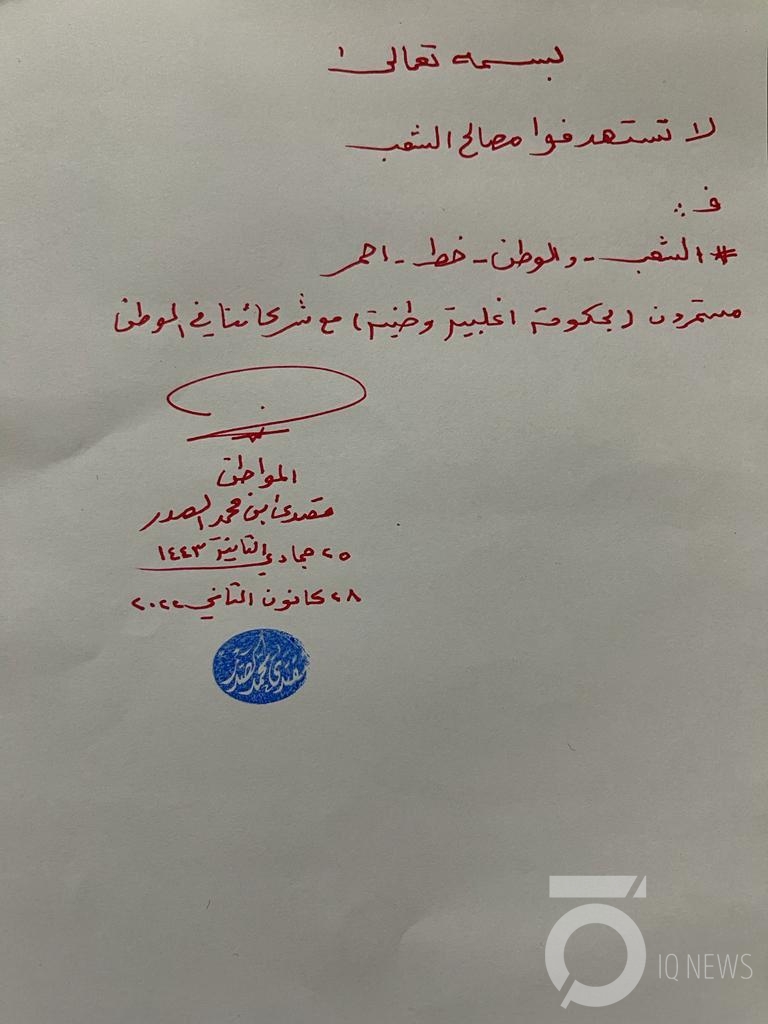 بسمه تعالى
لا تستهدفوا مصالح الشعب
فـ :
# الشعب - والوطن - خط - احمر
مستمرون (بحكومة اغلبية وطنية) مع شركائنا في الوطن
المواطن
مقتدى ابن محمد الصدر
٢٥ جمادي الثانية ١٤٤٣
٢٨ كانون الثاني ٢٠٢٢
مقتدى محمد الصدر
IQ NEWS